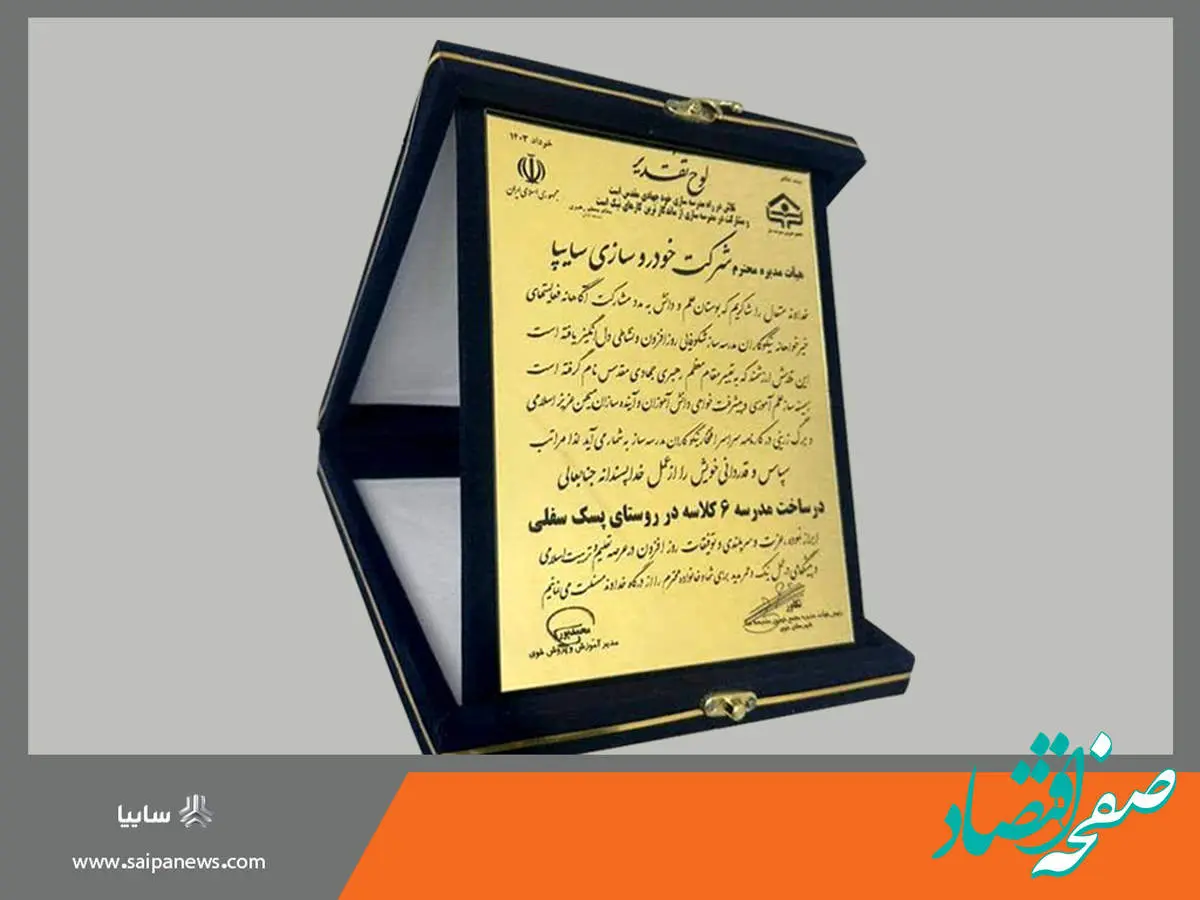 خرداد ۱۴۰۳
جمهوری اسلامی ایران
لوح تقدیر
تلاش در راه مدرسه سازی خود جهادی مقدس است
و مشارکت در مدرسه سازی از ماندگار ترین کارهای نیک است
هیأت مدیره محترم شرکت خودرو سازی سایپا
خداوند متعال را شاکریم که بوستان علم و دانش به مدد مشارکت آگاهانه فعالیتهای
خیرخواهانه نیکوکاران مدرسه ساز شکوفایی روزافزون و نشاطی دل انگیز یافته است
این تلاش ارزشمند که به تعبیر مقام معظم رهبری جهادی مقدس نام گرفته است
زمینه ساز علم آموزی و پیشرفت خواهی دانش آموزان و آینده سازان میهن عزیز اسلامی
و برگ زرینی در کارنامه سراسر افتخار نیکوکاران مدرسه ساز به شمار می آید لذا مراتب
سپاس و قدردانی خویش را از عمل خداپسندانه جنابعالی
در ساخت مدرسه ۶ کلاسه در روستای پسک سفلی
ابراز نموده، عزت و سربلندی و توفیقات روز افزون در عرصه تعلیم و تربیت اسلامی
برای شما و خانواده محترم را از درگاه خداوند مسئلت می نماییم
محمدپور
مدیر آموزش و پرورش خوی
سایپا
www.saipanews.com
صفحه اقتصاد